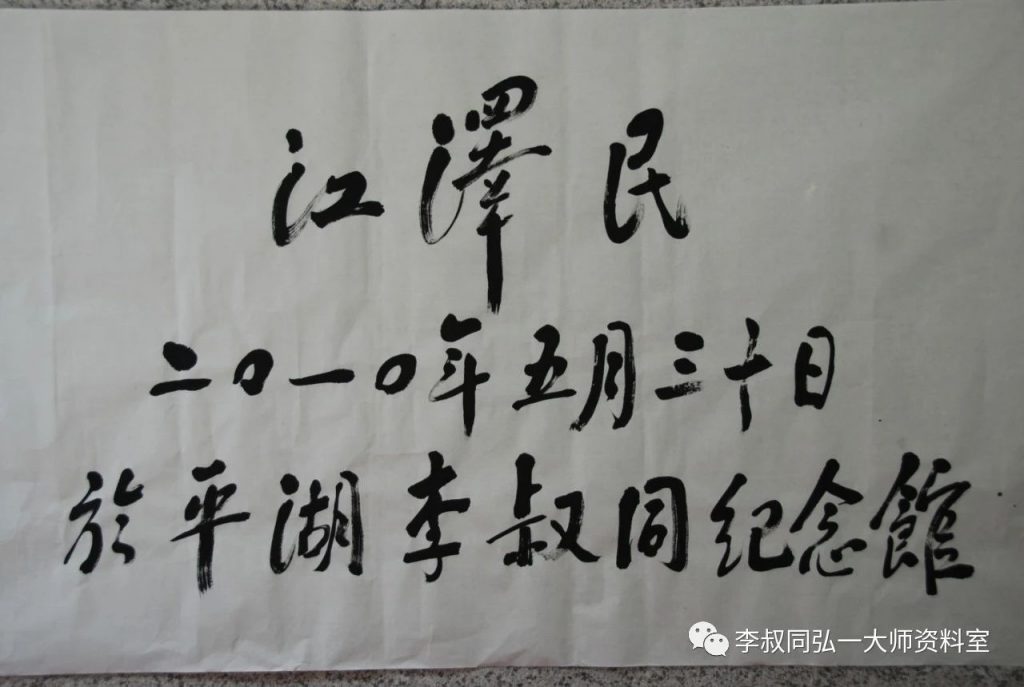 江澤民
二〇一〇年五月三十日
於平湖李叔同纪念館
李叔同弘一大师资料室